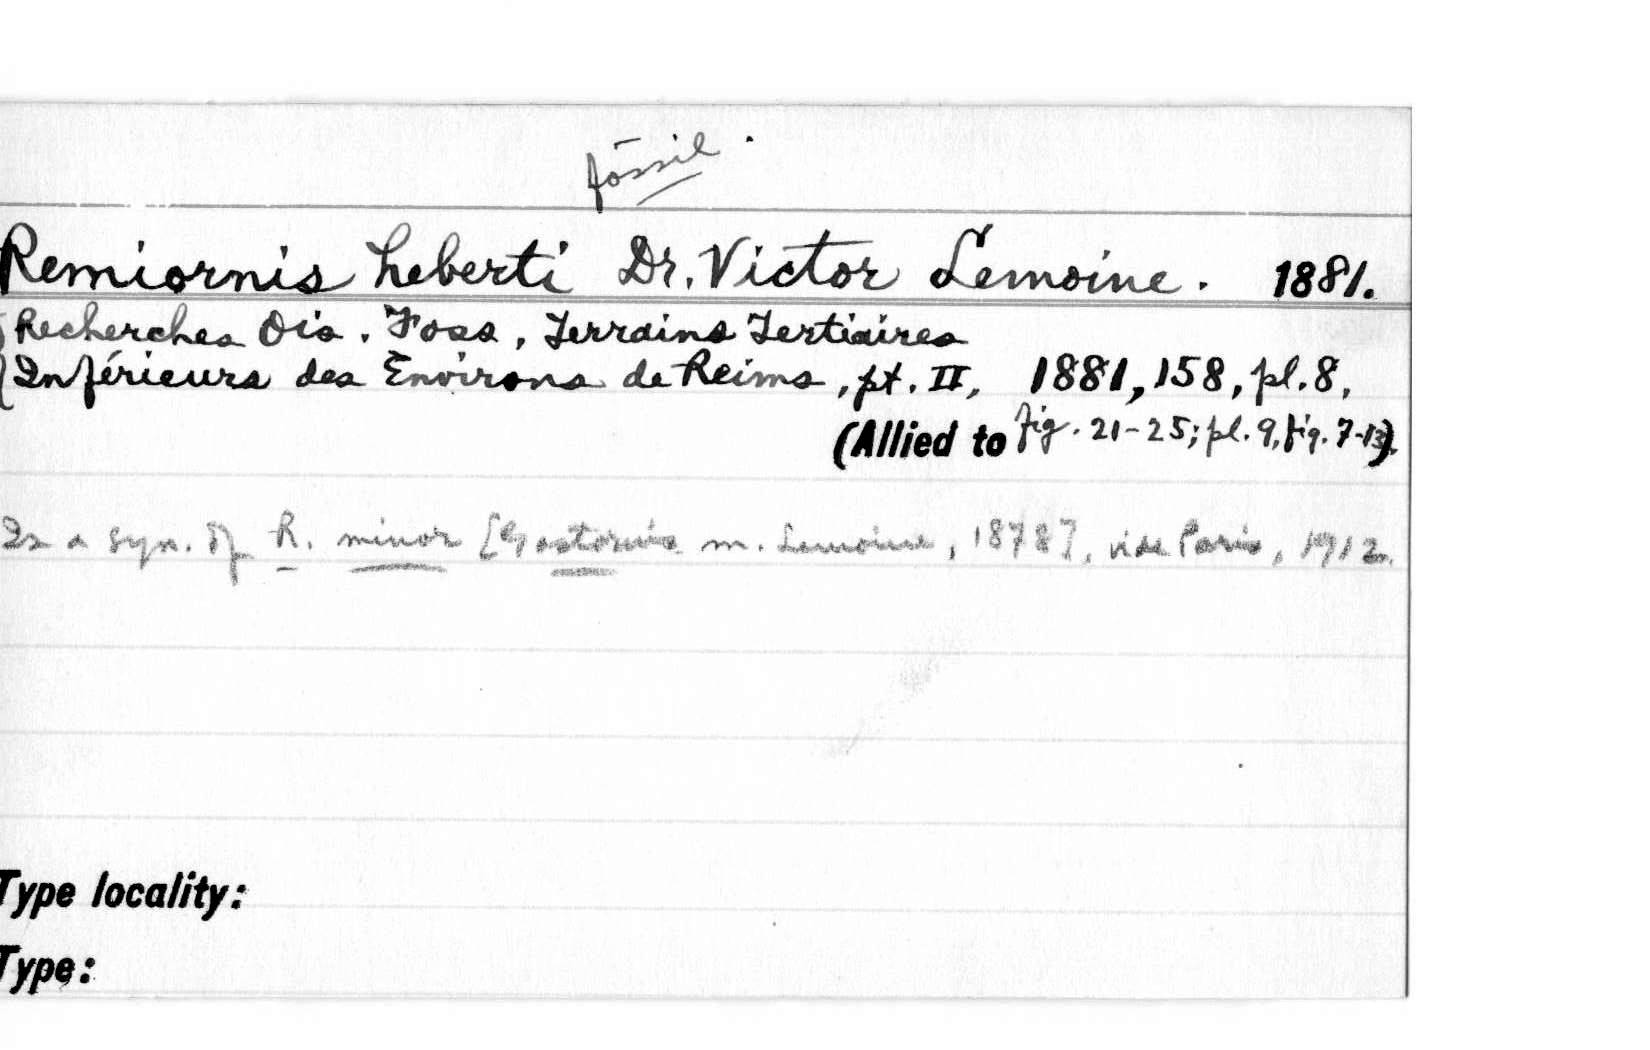 fossil.
Remiornis heberti Dr. Victor Lemoine. 1881.
Recherches Ois. Foss, Terrains Tertiaires
Inférieurs des Environs de Reims, pt. II, 1881, 158, pl. 8,
(Allied to fig. 21-25; pl. 9, fig. 7-13).
Is a syn. of R. minor [Gastornis m. Lemoine, 1878], vide Paris, 1912.
Type locality:
Type: